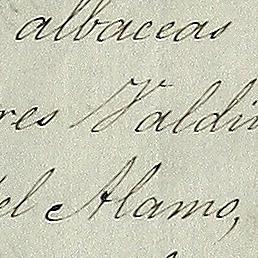 albaceas
res Valdi
del Alamo,